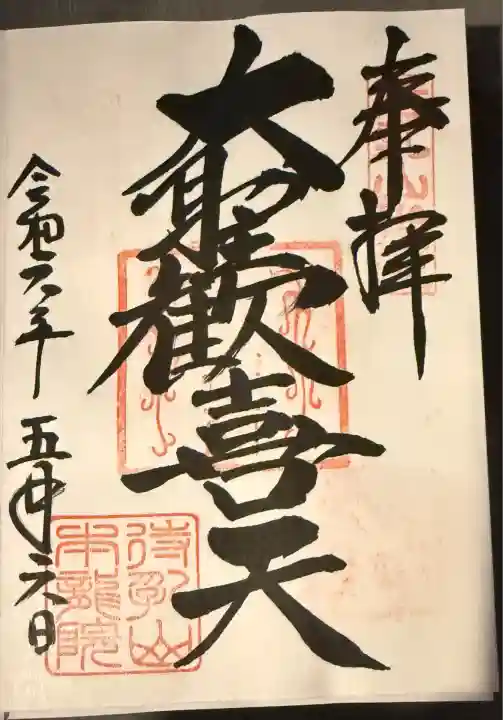 奉拝
大聖歓喜天
令和六年 五 日
待乳山
本龍院